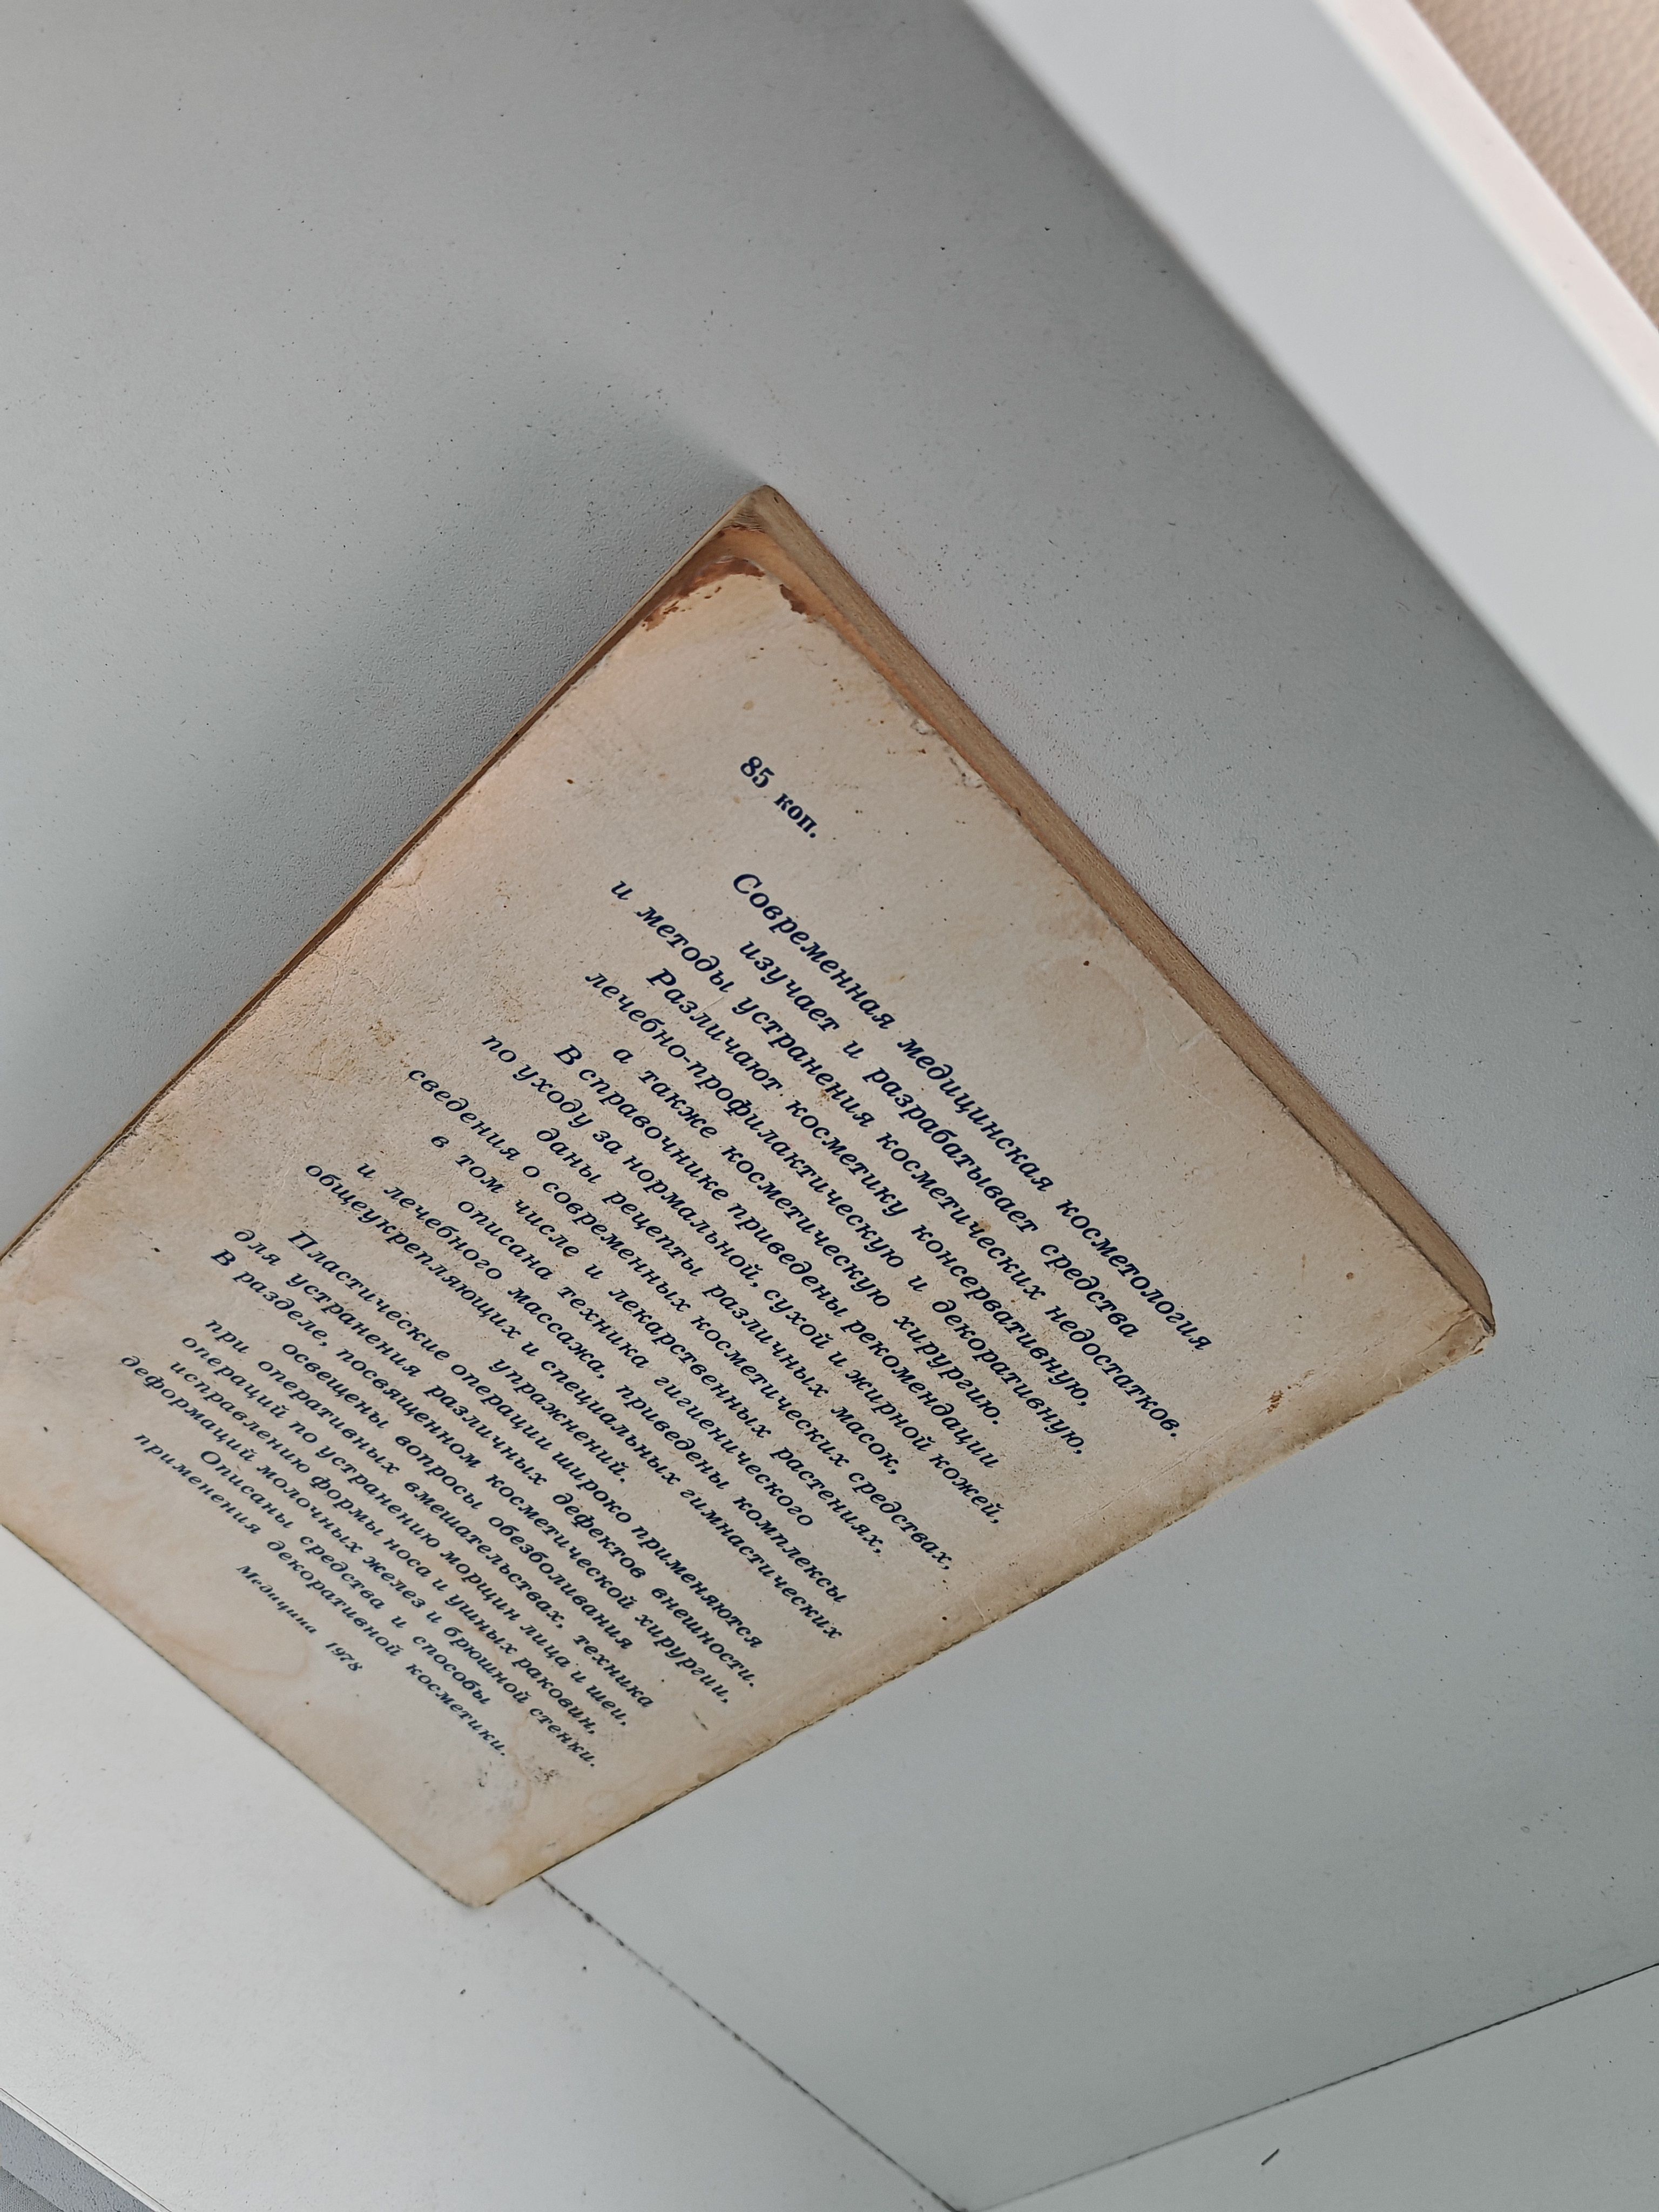 85 коп.
Современная медицинская косметология
изучает и разрабатывает средства
и методы устранения косметических недостатков.
Различают косметику консервативную,
лечебно-профилактическую и декоративную,
а также косметическую хирургию.
В справочнике приведены рекомендации
по уходу за нормальной, сухой и жирной кожей,
даны рецепты различных масок,
сведения о современных косметических средствах,
в том числе и лекарственных растениях,
описана техника гигиенического
и лечебного массажа, приведены комплексы
общеукрепляющих и специальных гимнастических
упражнений.
Пластические операции широко применяются
для устранения различных дефектов внешности.
В разделе, посвященном косметической хирургии,
освещены вопросы обезболивания
при оперативных вмешательствах, техника
операций по устранению морщин лица и шеи,
исправлению формы носа и ушных раковин,
деформаций молочных желез и брюшной стенки.
Описаны средства и способы
применения декоративной косметики.
Медицина 1978